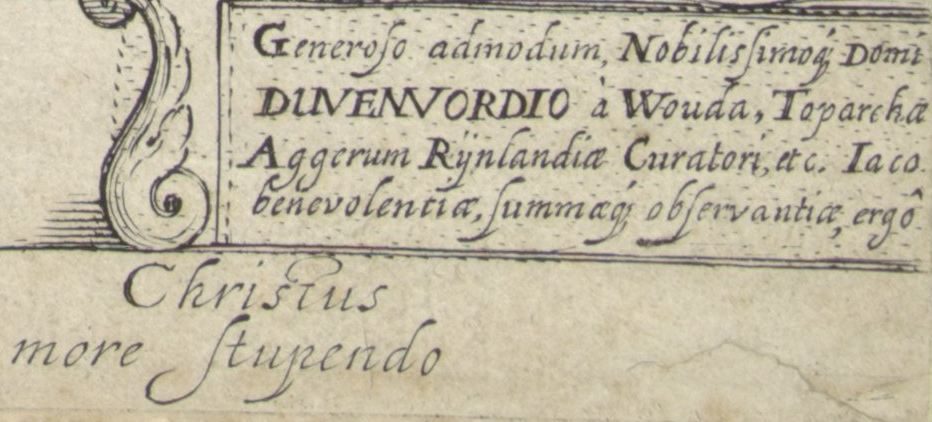 Generoſo admodum, Nobilisſimoq́ꝫ Domi
DUVENVORDIO à Wouda, Toparchæ
Aggerum Rÿnlandiæ Curatori, etc. Iaco
benevolentiæ, ſummæq́ꝫ obſervantiæ, ergô
Christus
more ſtupendo